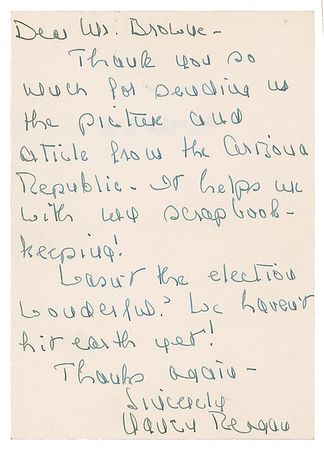 Dear Mr. Browne-
Thank you so
much for sending us
the picture and
article from the Arizona
Republic- It helps me
with my scrapbook-
keeping!
Wasn't the election
wonderful? We haven't
hit earth yet!
Thanks again-
Sincerely
Nancy Reagan